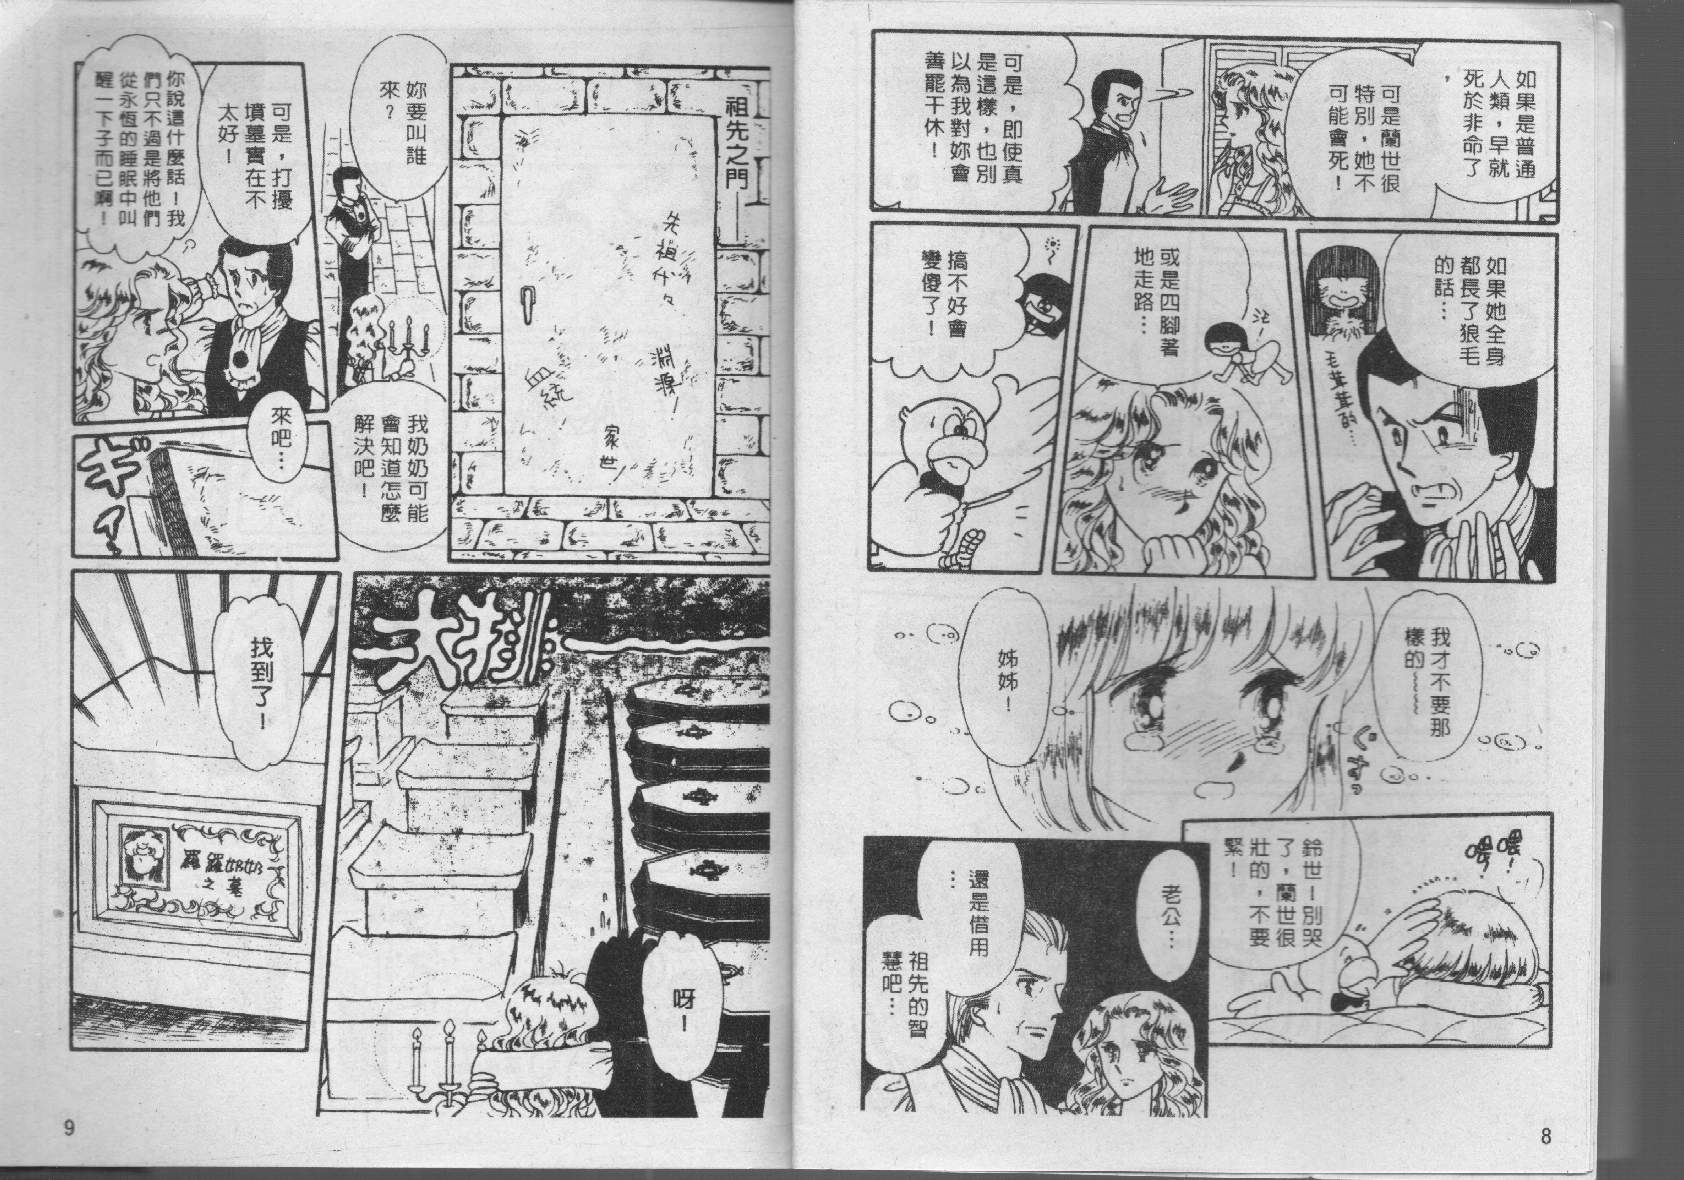 如果是普通
人類，早就
死於非命了
，
可是蘭世很
特別，她不
可能會死！
可是，即使真
是這樣，也別
以為我對妳會
善罷干休！
如果她全身
都長了狼毛
的話…
毛茸茸的…
或是四腳著
地走路…
搞不好會
變傻了！
我才不要那
樣的~~~~
姊姊！
ぐすっ
喂！
喂！
鈴世—別哭
了，蘭世很
壯的，不要
緊！
老公…
還是借用
…
祖先的智
慧吧…
8
祖先之門——
先祖代々
淵源！
血統
家世
妳要叫誰
來？
我奶奶可能
會知道怎麼
解決吧！
可是，打擾
墳墓實在不
太好！
你說這什麼話！我
們只不過是將他們
從永恆的睡眠中叫
醒一下子而已啊！
來吧…
ギィ
呀！
找到了！
羅羅奶奶
之墓
9